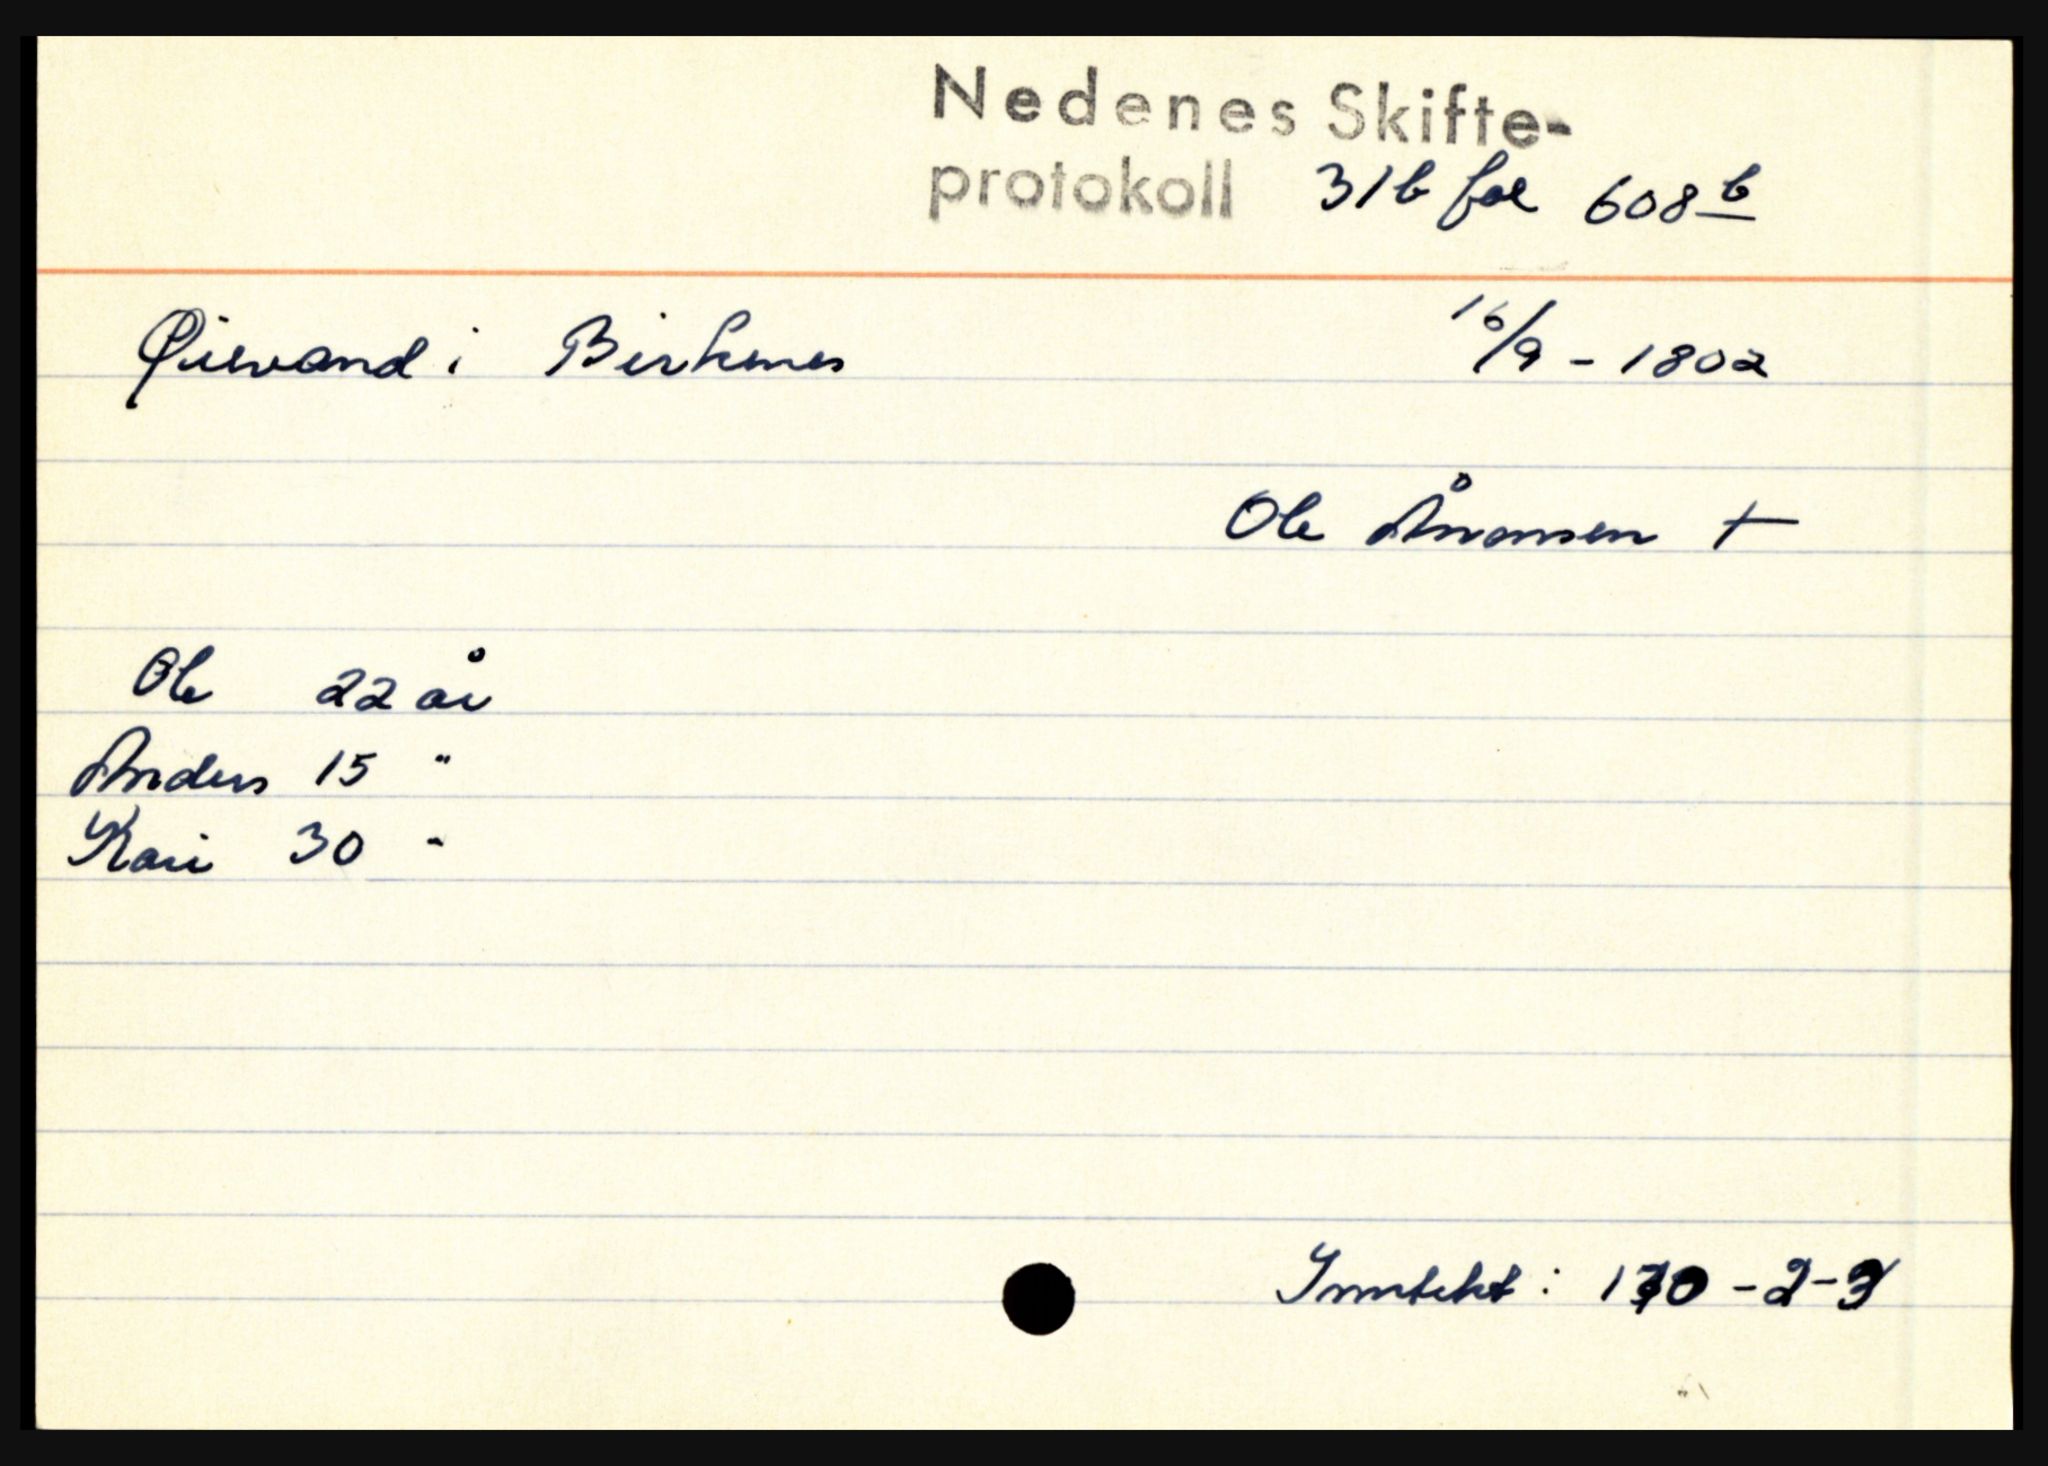 Nedenes Skifte-
protokoll 31b fol 608 b
Øievand i Birkenes 16/9 - 1802
Ole Ånonsen +
Ole 22 år
Anders 15 "
Kari 30 "
Inntekt : - 2 - 3